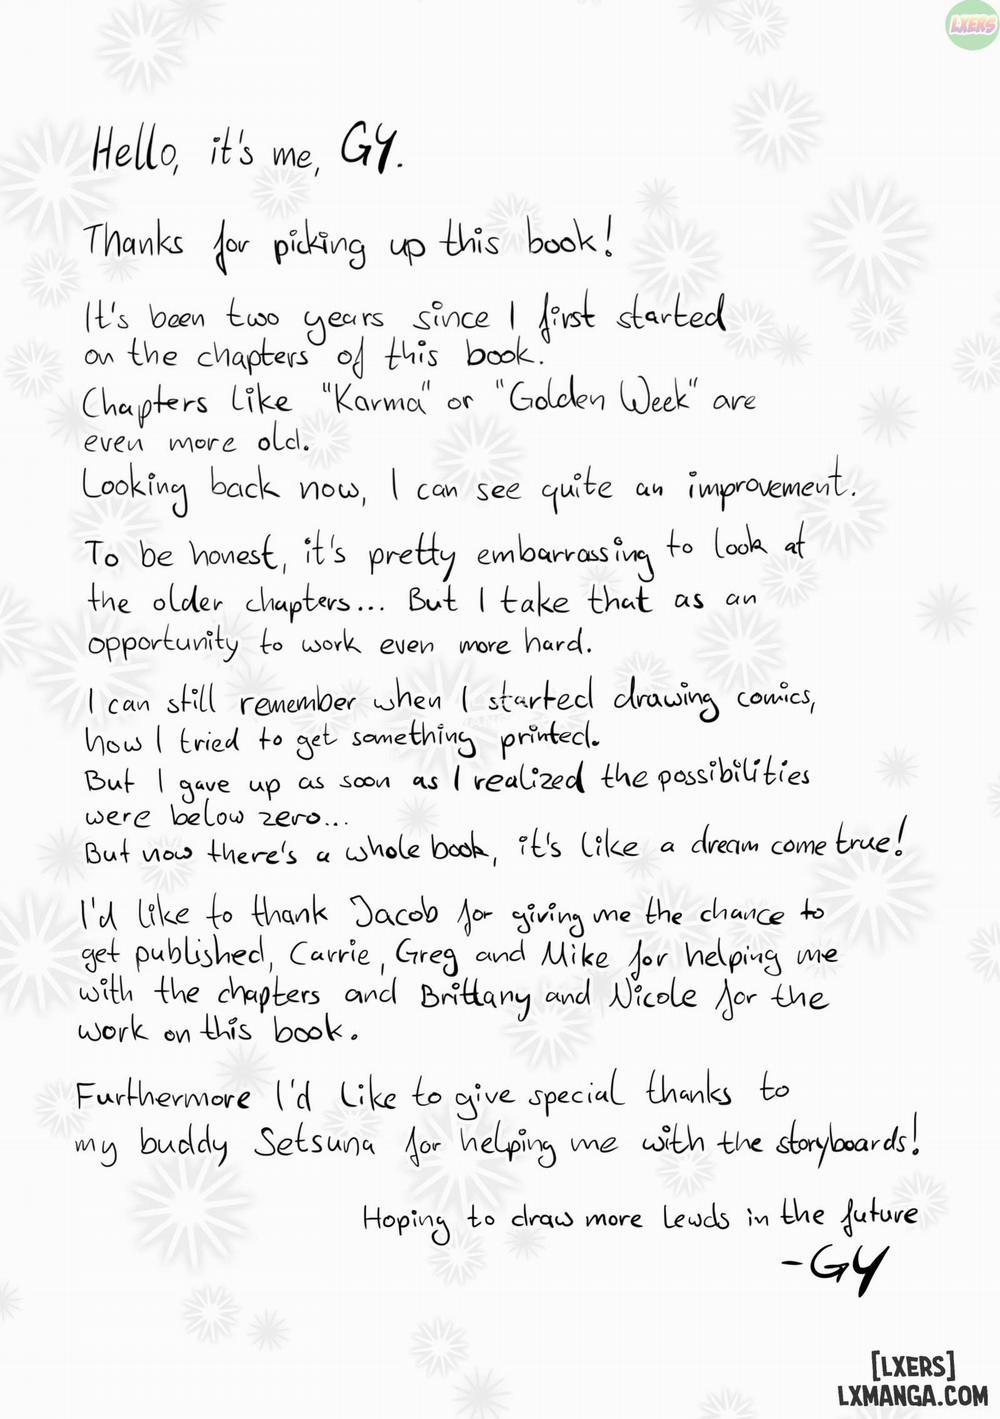 LXERS
Hello, it's me, GY.
Thanks for picking up this book!
It's been two years since I first started
on the chapters of this book.
Chapters like "Karma" or "Golden Week" are
even more old.
Looking back now, I can see quite an improvement.
To be honest, it's pretty embarrassing to look at
the older chapters... But I take that as an
opportunity to work even more hard.
I can still remember when I started drawing comics,
how I tried to get something printed.
But I gave up as soon as I realized the possibilities
were below zero...
But now there's a whole book, it's like a dream come true!
I'd like to thank Jacob for giving me the chance to
get published, Carrie, Greg and Mike for helping me
with the chapters and Brittany and Nicole for the
work on this book.
Furthermore I'd like to give special thanks to
my buddy Setsuna for helping me with the storyboards!
Hoping to draw more lewds in the future
-GY
[LXERS]
LXMANGA.COM